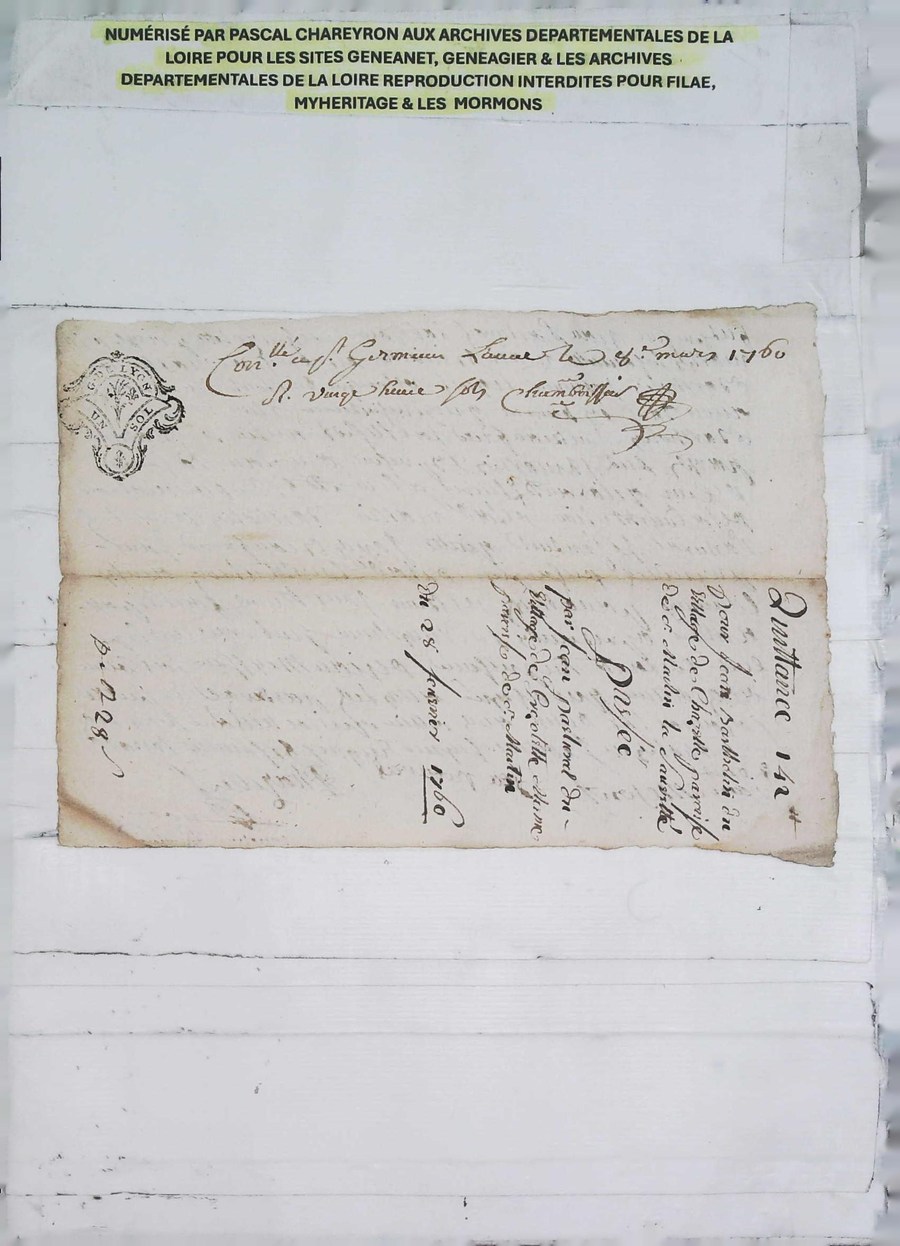 NUMÉRISÉ PAR PASCAL CHAREYRON AUX ARCHIVES DEPARTEMENTALES DE LA
LOIRE POUR LES SITES GENEANET, GENEAGIER & LES ARCHIVES
DEPARTEMENTALES DE LA LOIRE REPRODUCTION INTERDITES POUR FILAE,
MYHERITAGE & LES MORMONS
Conllé a st Germain Laval le 8e mars 1760
R. vingt huit sols
G. DE LYON
UN SOL
Quittance 142
pour Jean Barthelin du
village de parroisse
de st Martin la Sauveté
Passée
par Jean pastural du
village de mesme
parroisse de st Martin
du 28 fevrier 1760